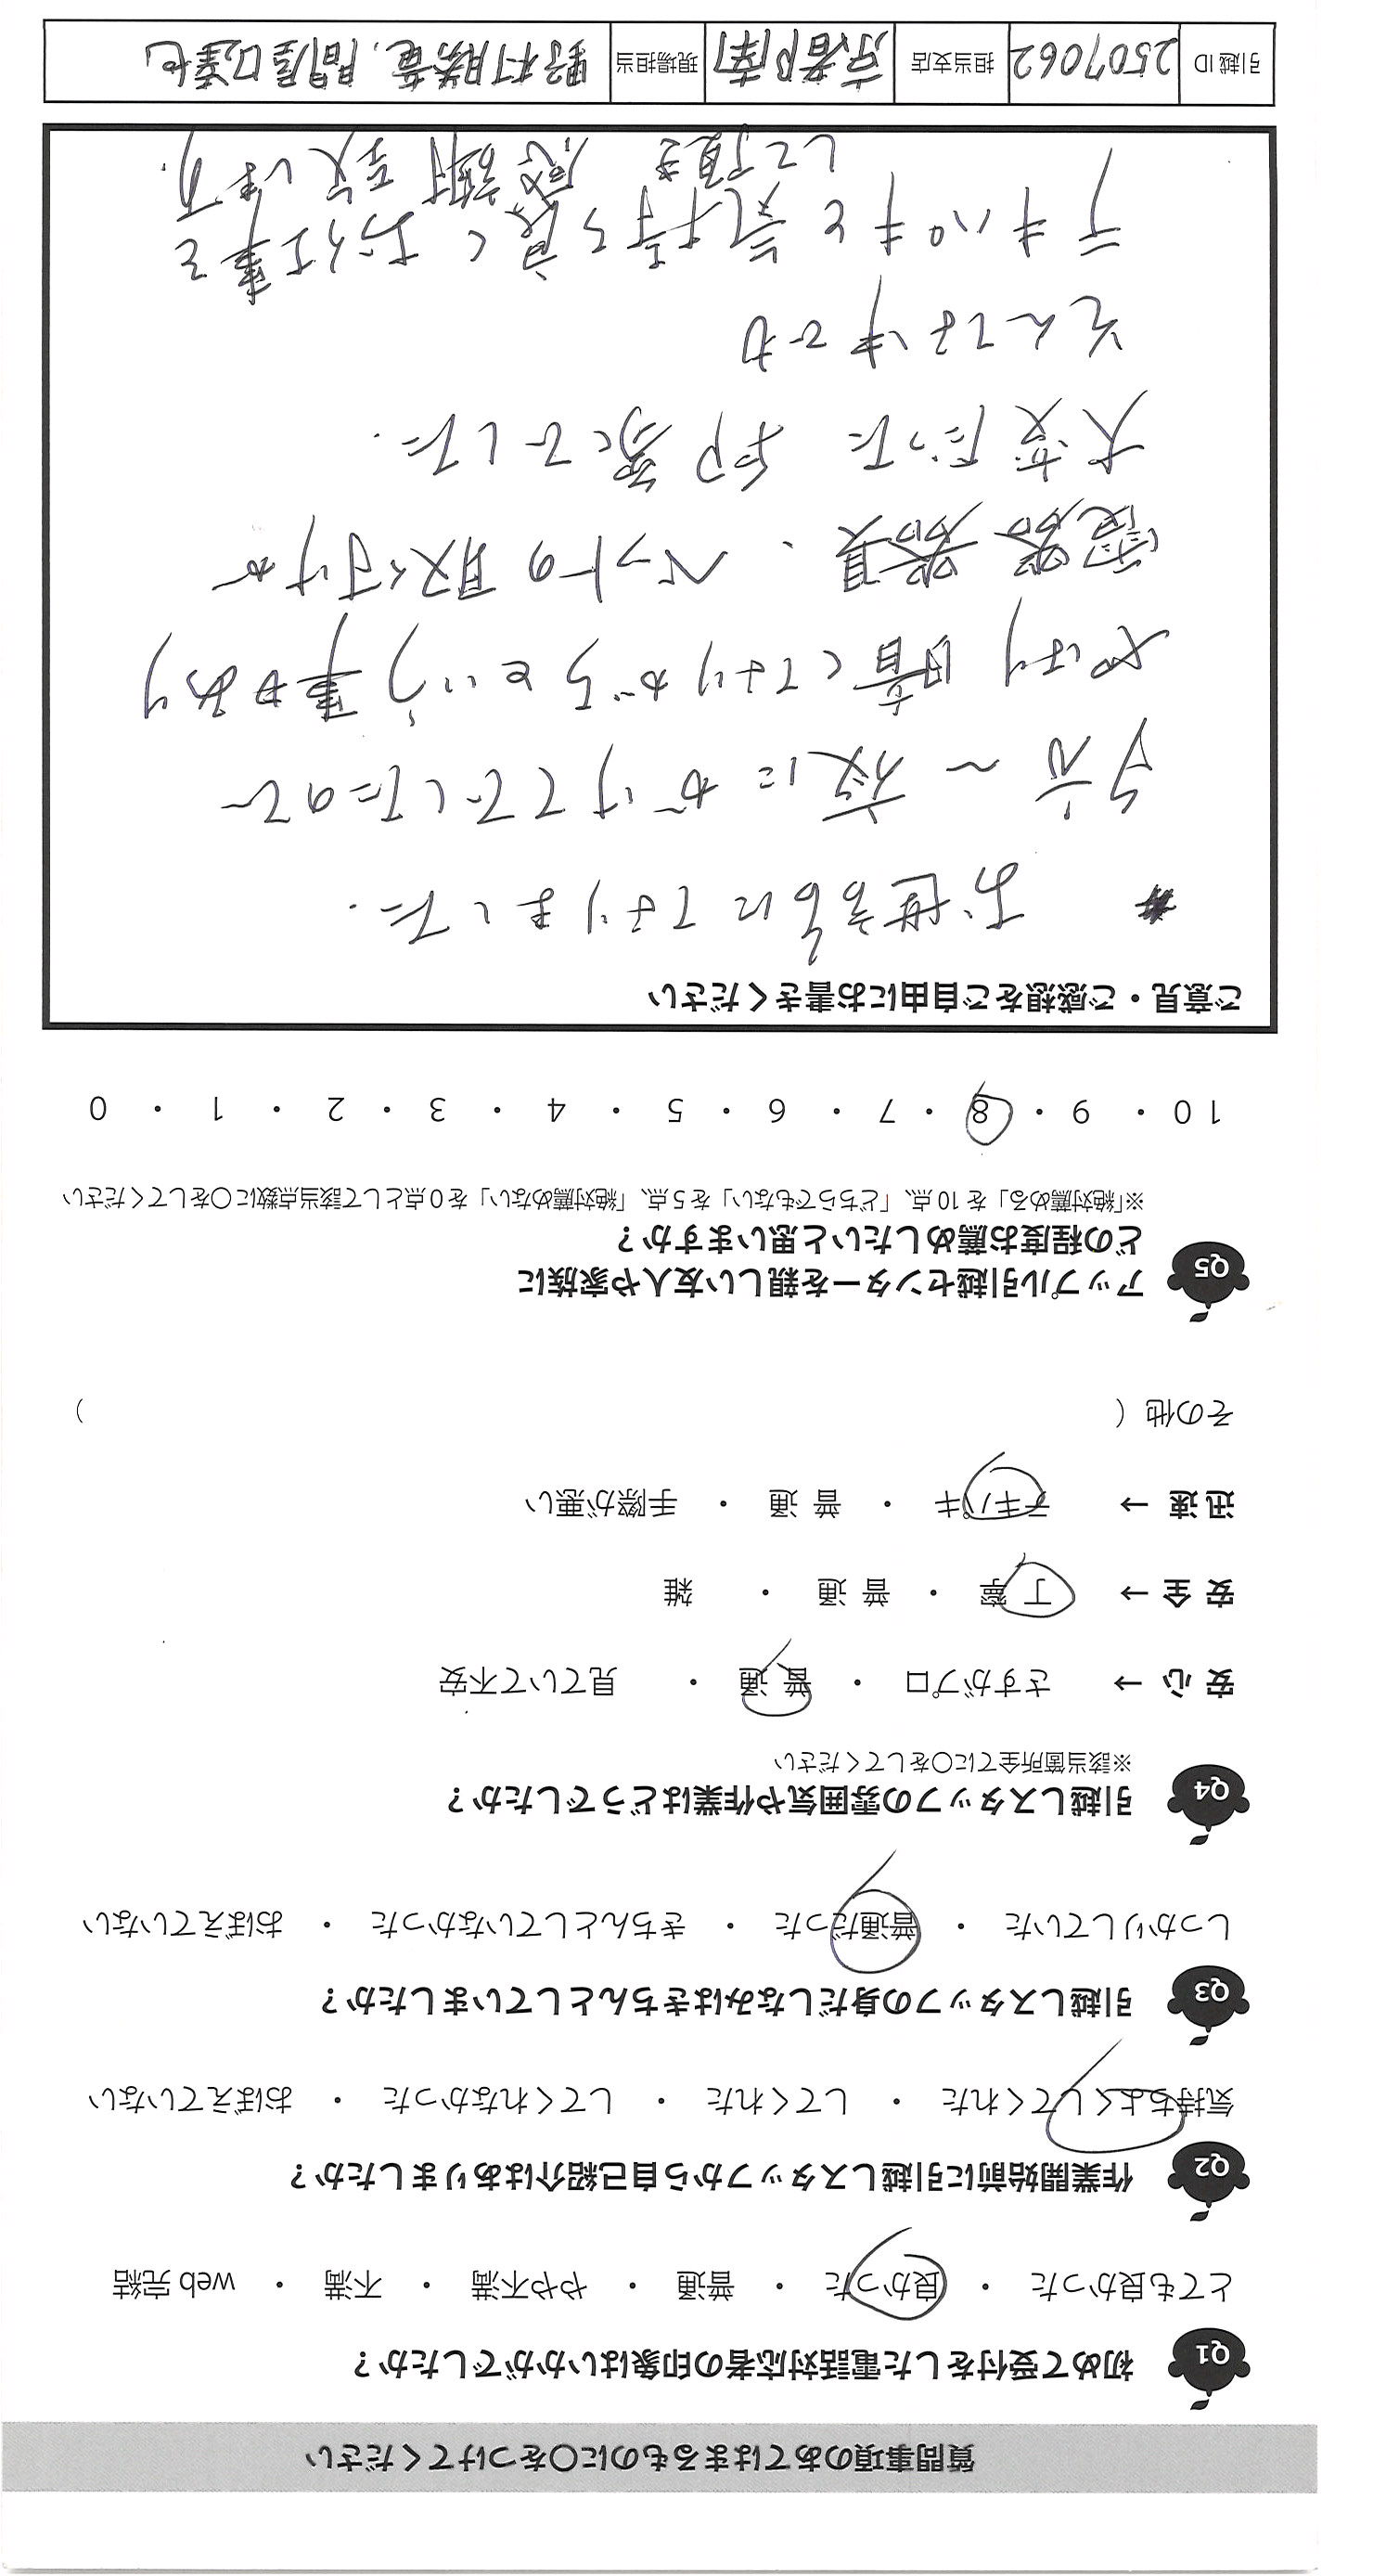 質問事項のあてはまるものに〇をつけてください
Q1 初めて受付をした電話対応者の印象はいかがでしたか？
とても良かった ・ 良かった ・ 普通 ・ やや不満 ・ 不満 ・ web完結
Q2 作業開始前に引越しスタッフから自己紹介はありましたか？
気持ちよくしてくれた ・ してくれた ・ してくれなかった ・ おぼえていない
Q3 引越しスタッフの身だしなみはきちんとしていましたか？
しっかりしていた ・ 普通だった ・ きちんとしていなかった ・ おぼえていない
Q4 引越しスタッフの雰囲気や作業はどうでしたか？
※該当箇所全てに〇をしてください
安心 → さすがプロ ・ 普通 ・ 見ていて不安
安全 → 丁寧 ・ 普通 ・ 雑
迅速 → テキパキ ・ 普通 ・ 手際が悪い
その他 （ ）
Q5 アップル引越センターを親しい友人や家族に
どの程度お薦めしたいと思いますか？
※「絶対薦める」を10点、「どちらでもない」を5点、「絶対薦めない」を0点として該当点数に〇をしてください
10 ・ 9 ・ 8 ・ 7 ・ 6 ・ 5 ・ 4 ・ 3 ・ 2 ・ 1 ・ 0
ご意見・ご感想をご自由にお書きください
お世話になりました.
夕方〜夜にかけてでしたので
やはり暗くなりがちという事もあり
器具、ベットの取り付けが
大変だった印象でした.
そんな中でも
テキパキと気持ち良くお仕事を
して頂き 感謝致します.
引越ID 2507062 担当支店 京都南 現場担当 野村勝 間屋口達也